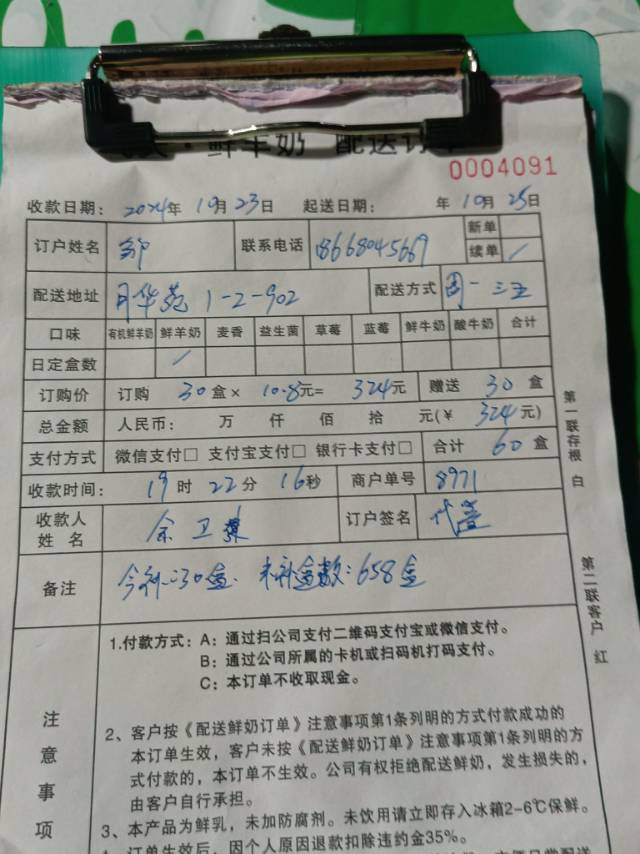 鲜羊奶 配送订
0004091
收款日期： 2024年 10月 23日 起送日期： 年 10月 25日
订户姓名 邹 联系电话 18668045669 新单
续单 /
配送地址 月华苑 1-2-902 配送方式 周一三五
口味 有机鲜羊奶 鲜羊奶 麦香 益生菌 草莓 蓝莓 鲜牛奶 酸牛奶 合计
日定盒数 /
订购价 订购 30 盒× 10.8元= 324元 赠送 30 盒
总金额 人民币： 万 仟 佰 拾 元(￥ 324元)
支付方式 微信支付□ 支付宝支付□ 银行卡支付□ 合计 60 盒
收款时间： 19时 22分 16秒 商户单号 8971
收款人姓名 余卫 订户签名 代
备注 今补30盒. 未补盒数：658盒
第一联存根 白
第二联客户 红
注意事项
1.付款方式：A：通过扫公司支付二维码支付宝或微信支付。
B：通过公司所属的卡机或扫码机打码支付。
C：本订单不收取现金。
2、客户按《配送鲜奶订单》注意事项第1条列明的方式付款成功的
本订单生效，客户未按《配送鲜奶订单》注意事项第1条列明的方
式付款的，本订单不生效。公司有权拒绝配送鲜奶，发生损失的，
由客户自行承担。
3、本产品为鲜乳，未加防腐剂。未饮用请立即存入冰箱2-6℃保鲜。
订单生效后，因个人原因退款扣除违约金35%。